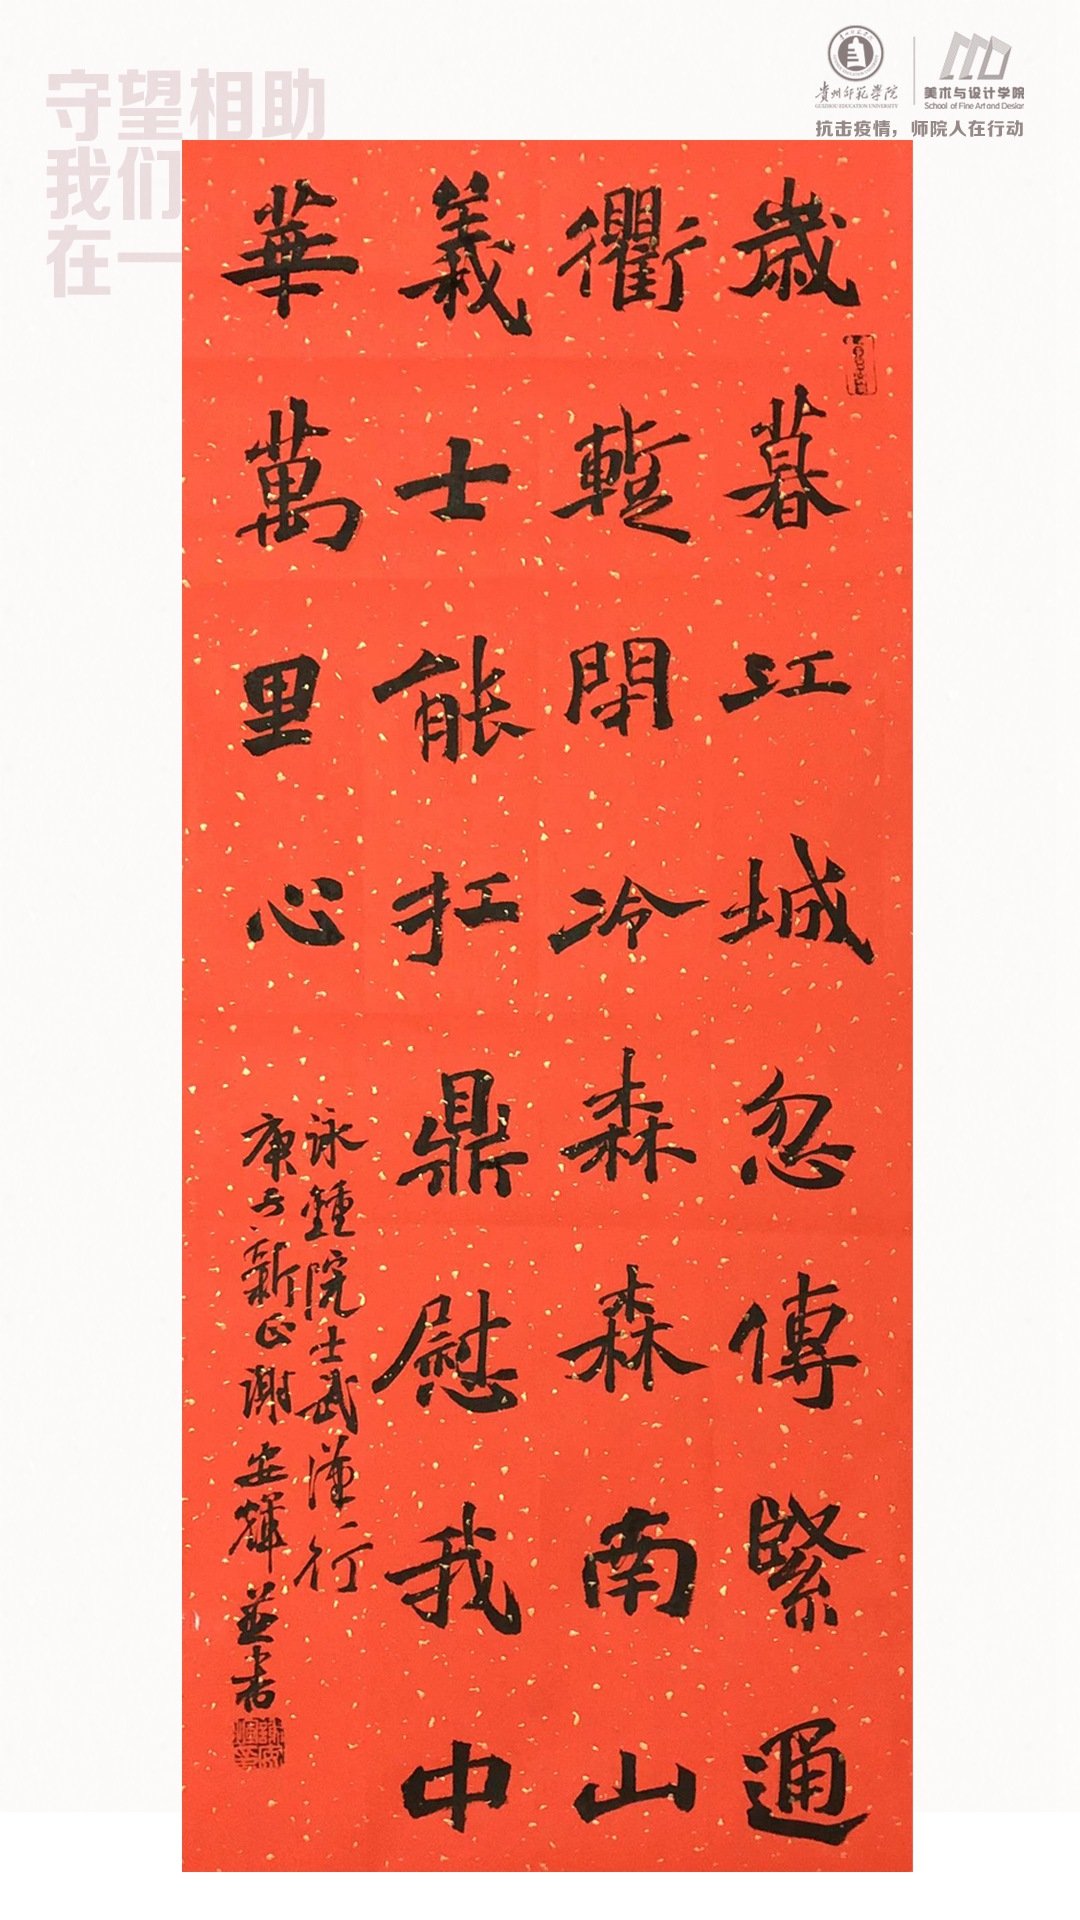 守望相助
我们
在一
貴州師範學院
GUIZHOU EDUCATION UNIVERSITY
美术与设计学院
School of Fine Art and Design
抗击疫情，师院人在行动
歲暮江城忽傳緊通
衢暫閉冷森森南山
義士能扛鼎慰我中
華萬里心
詠鍾院士武漢行
庚子新正謝安輝並書